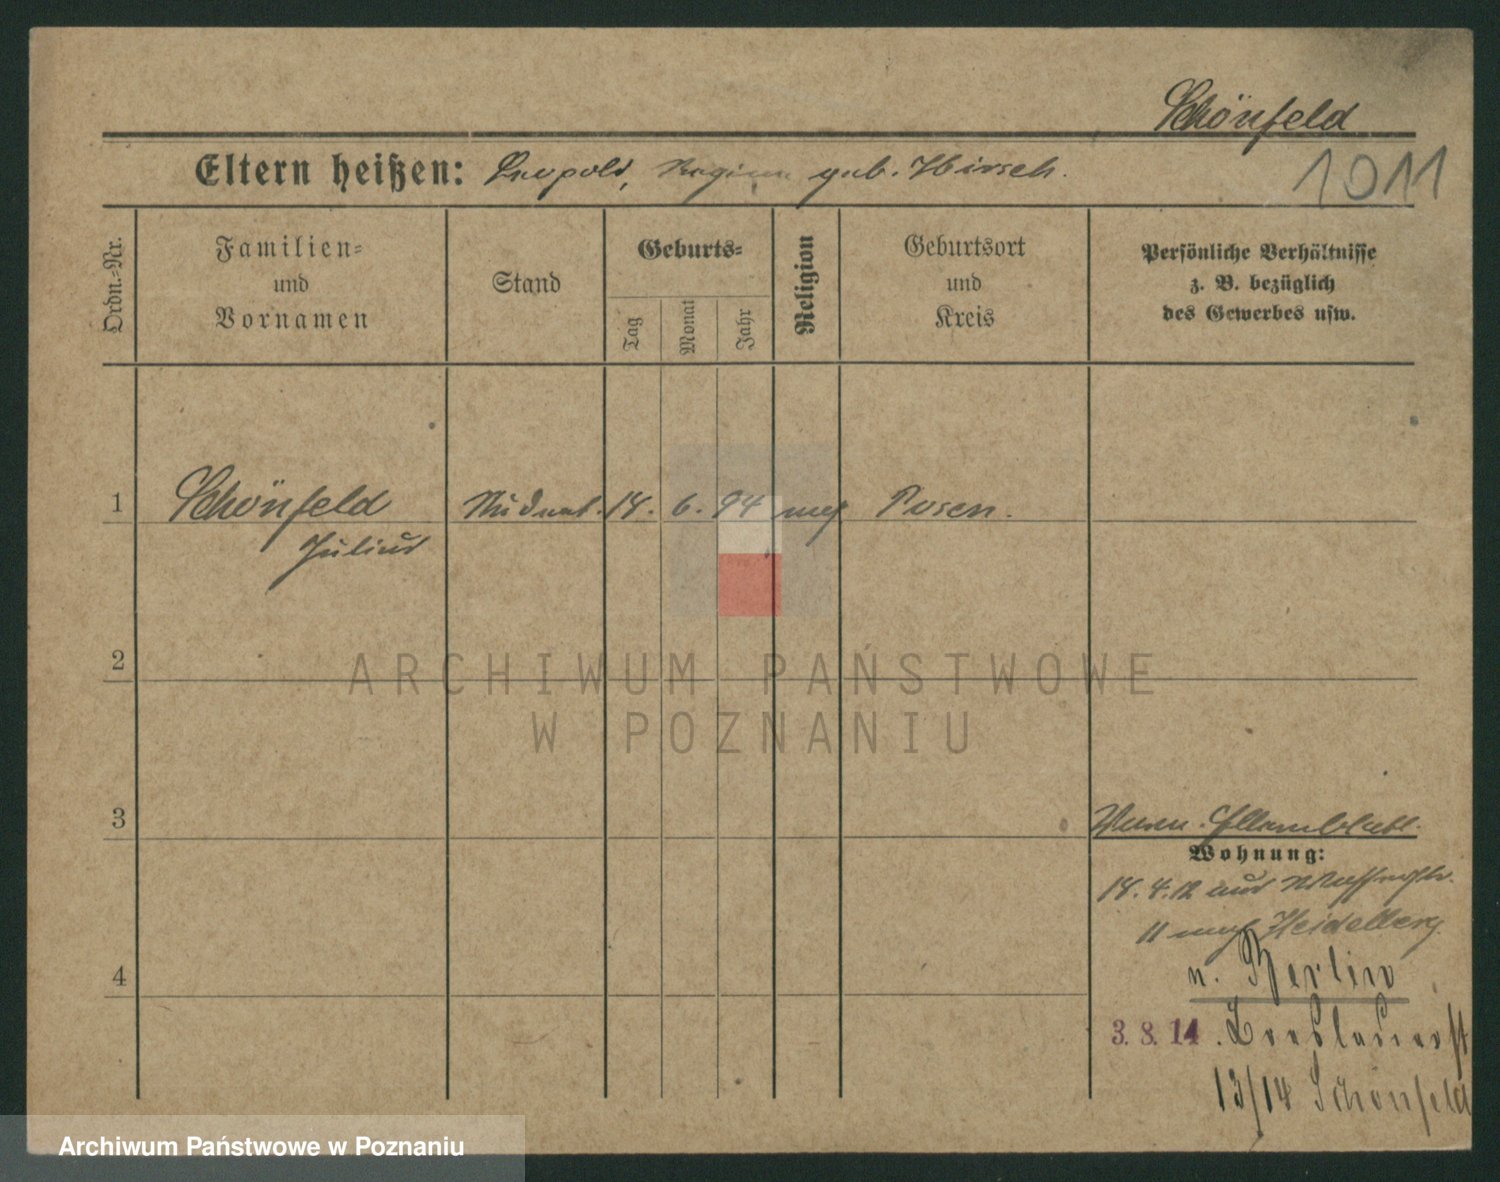 Schönfeld
Eltern heißen: Leopold, Regina geb. Hirsch.
1011
Ordn.-Nr.
Familien-
und
Vornamen
Stand
Geburts-
Tag
Monat
Jahr
Religion
Geburtsort
und
Kreis
Persönliche Verhältnisse
z. B. bezüglich
des Gewerbes usw.
1 Schönfeld Student. 18. 6. 94 mos Posen.
Julius
2
ARCHIWUM PAŃSTWOWE
W POZNANIU
3
Elternblatt.
Wohnung:
18. 4. 12 aus
11 nach Heidelberg.
4
n. Berlin
3. 8. 14. Breslauerst
13/14 Schönfeld
Archiwum Państwowe w Poznaniu